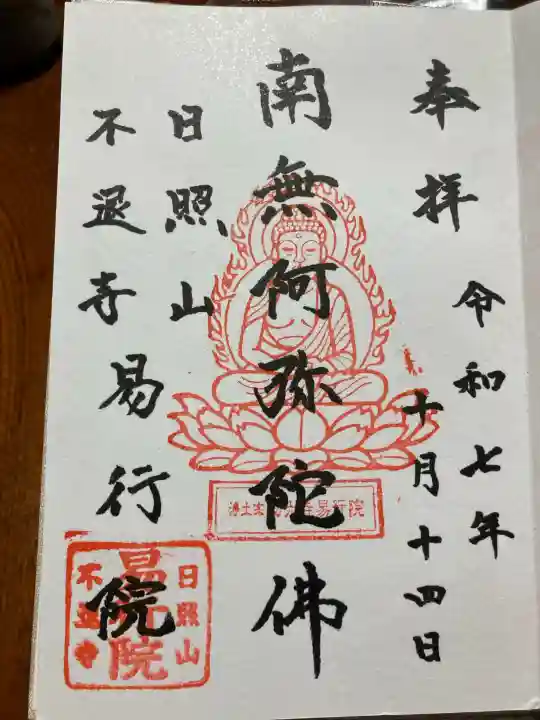 奉拝
令和七年
十月十四日
南無阿弥陀佛
日照山
不退寺易行院
易行院
日照山
不退寺